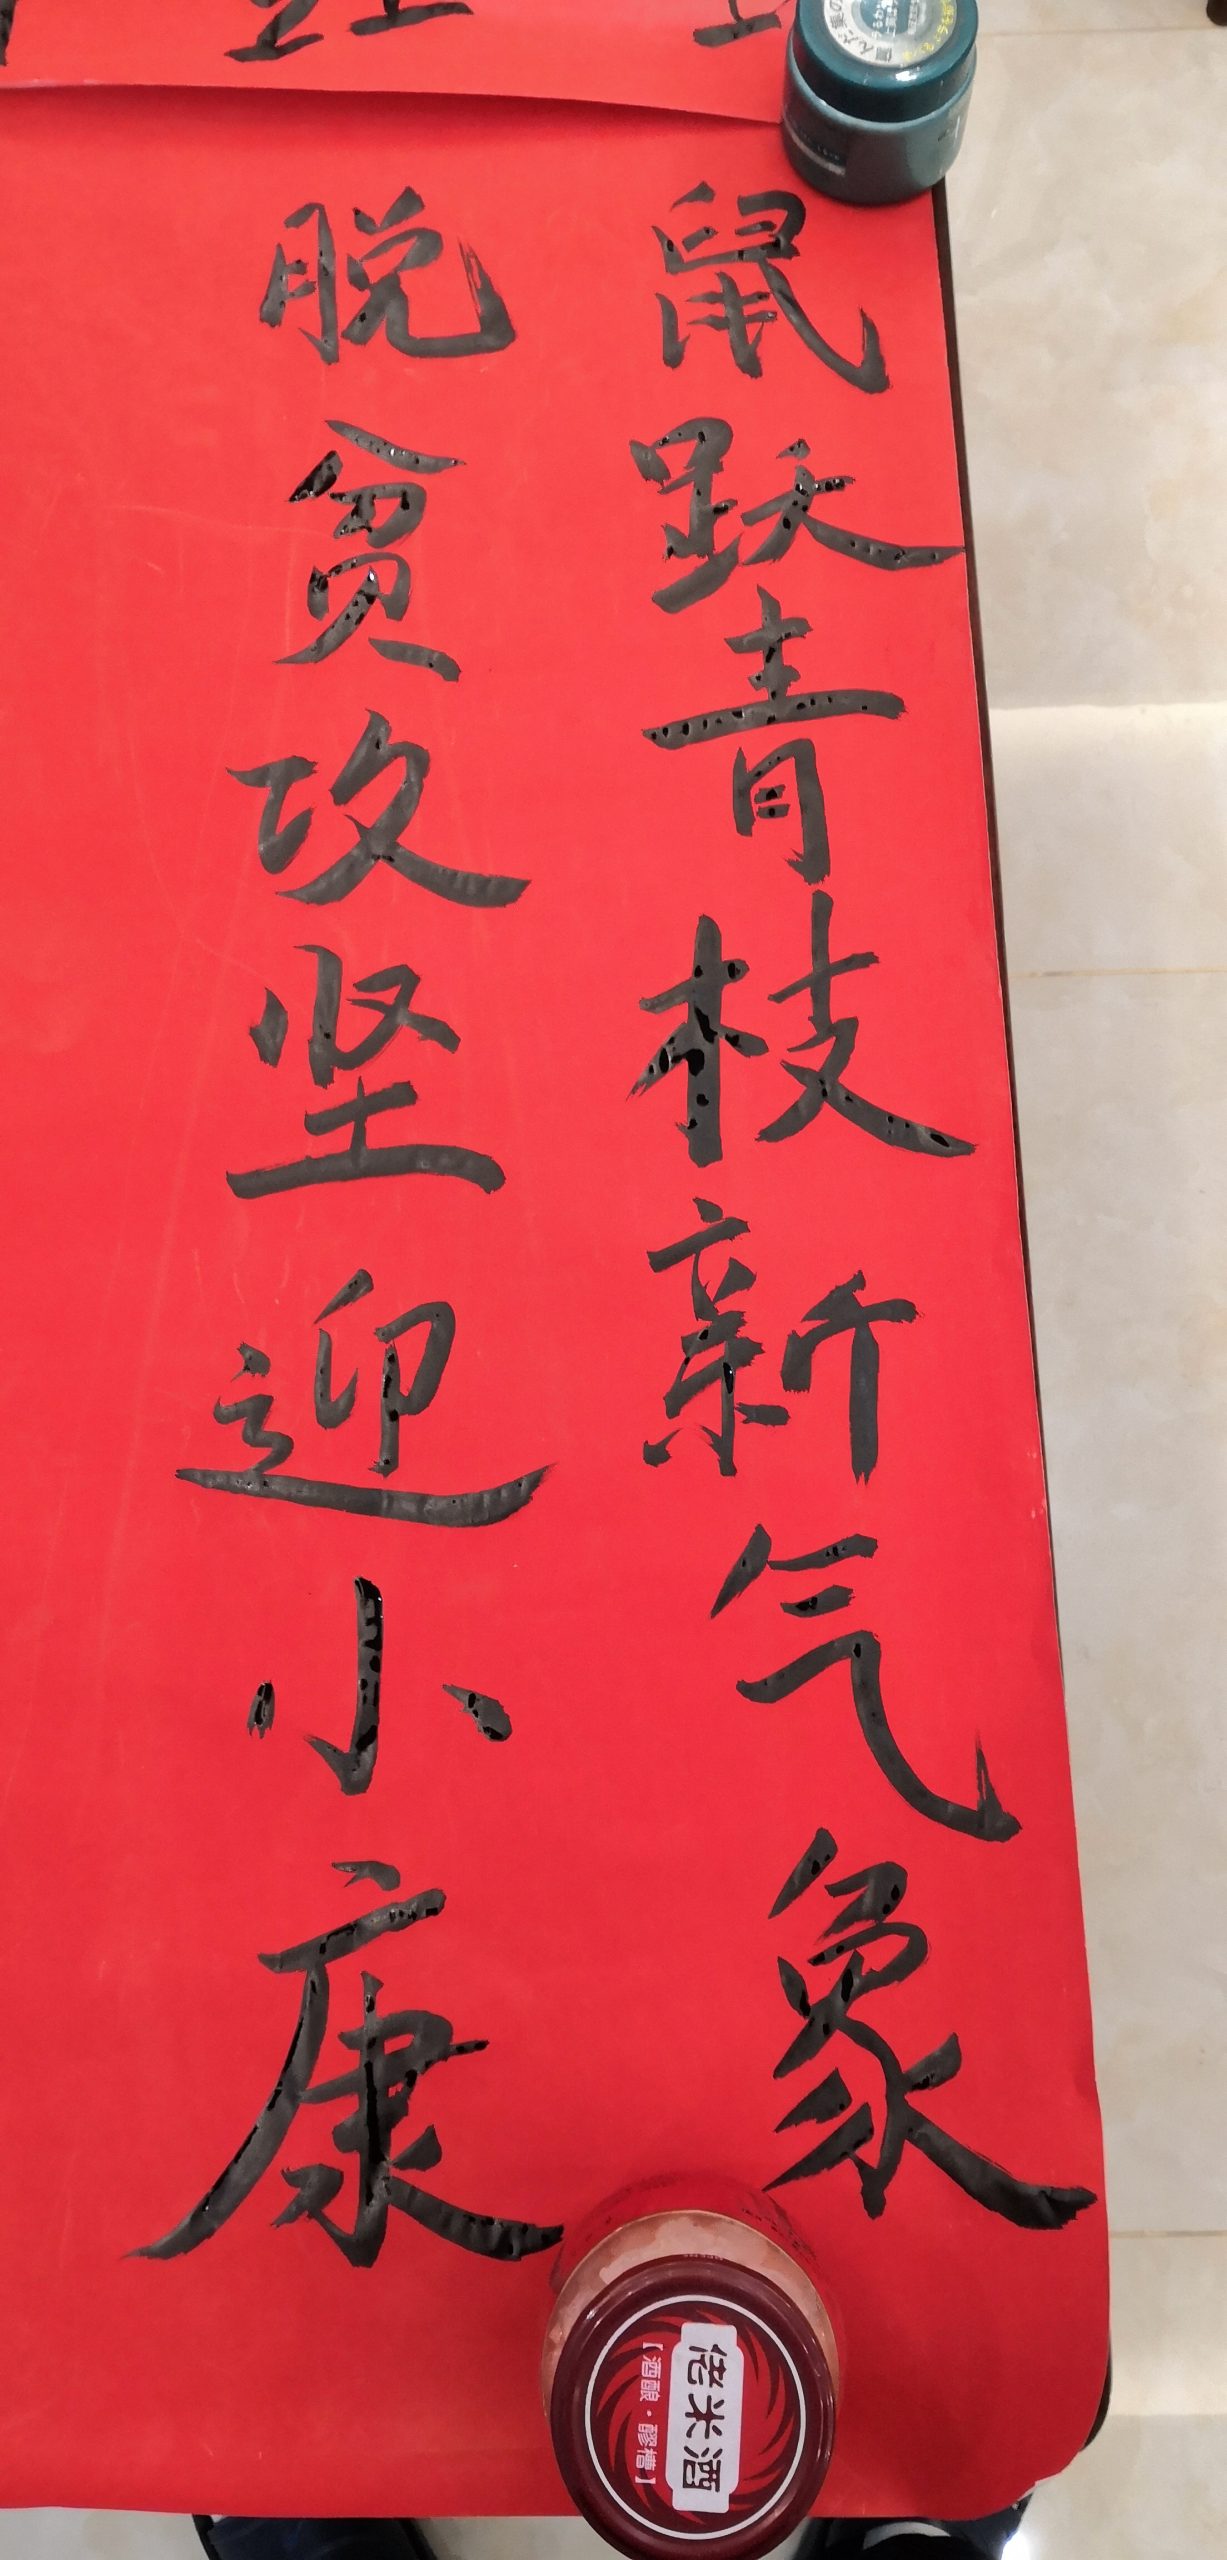 鼠跃青枝新气象
脱贫攻坚迎小康
佬米酒
【酒酿·醪糟】